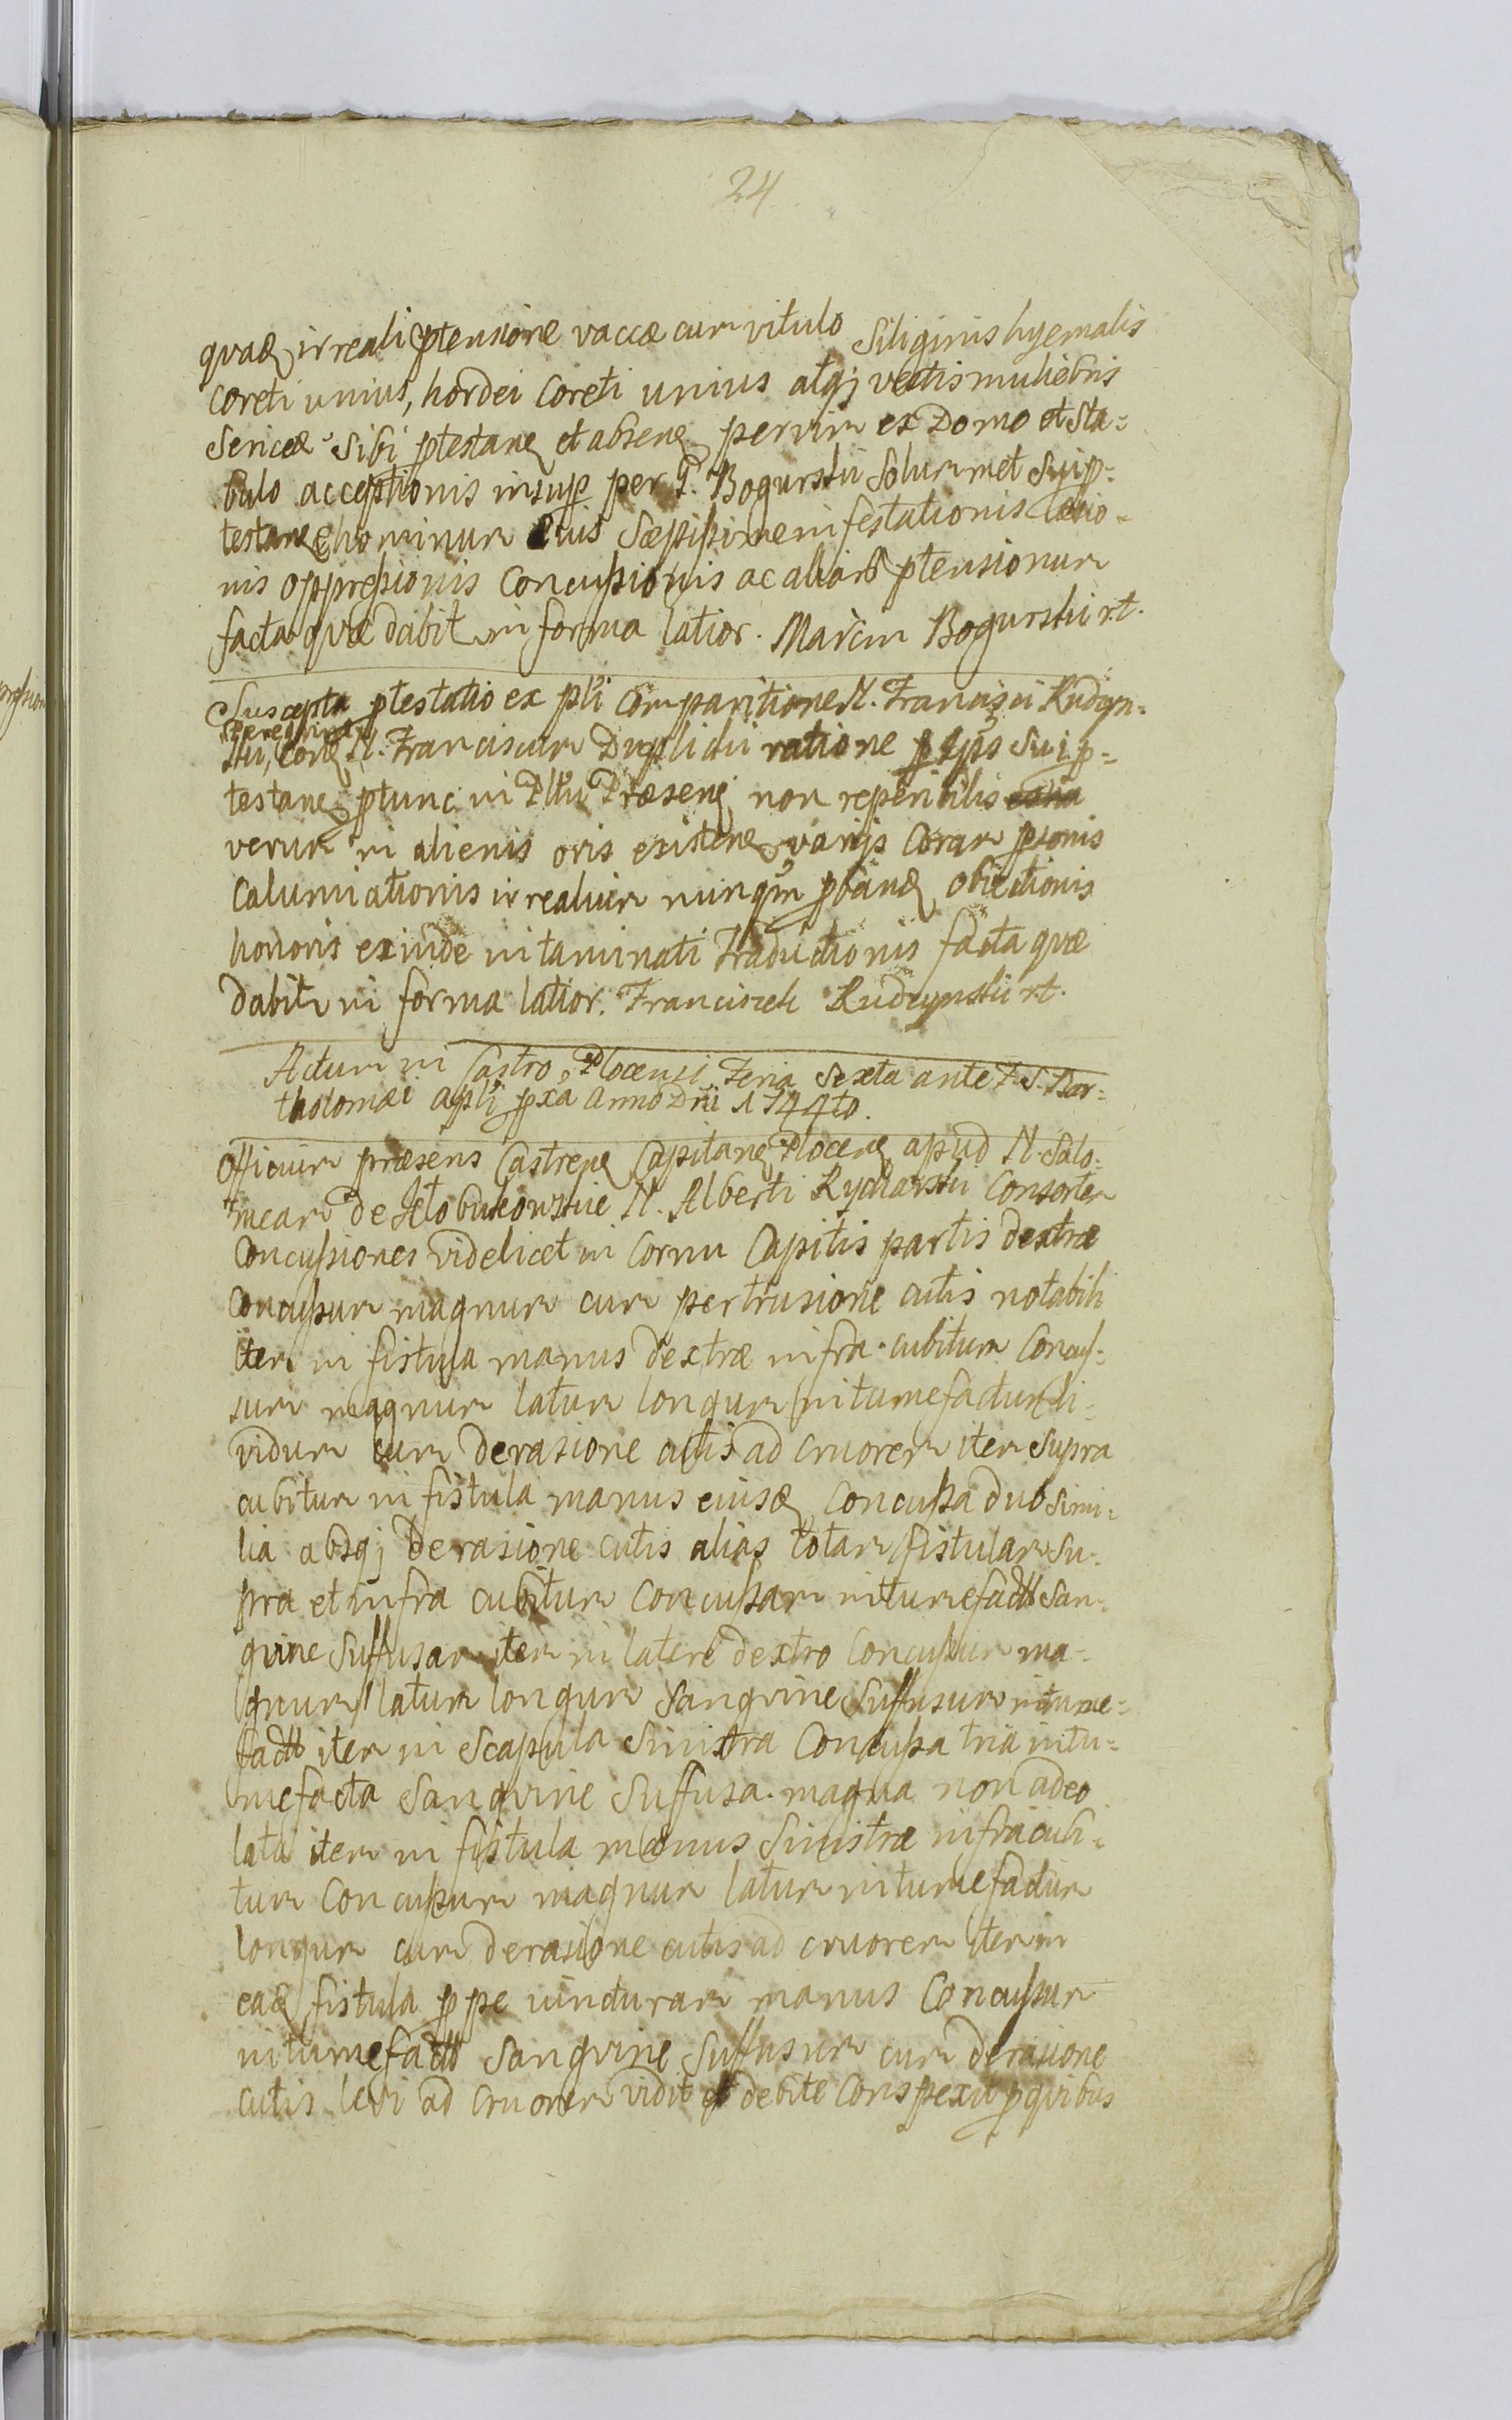 24
quae irreali ptensione vaccae cum vitulo Siliginis hyemalis
coreti unius, hordei coreti unius atqj vestis muliebris
Sericeae Sibi ptestane et absene per vim ex Domo et Sta-
bulo acceptionis insup per G. Bogurski Solum met Sui p-
testane hominum Eius Saepissime infestationis
nis oppressionis Concussionis ac aliar ptensionum
facta quae dabit in forma latior. Marcin Bogurski rt.
Suscepta ptestatio ex pli Comparitione N. Francisci Rudzyn-
ski, con N. Franciscum Duplicki ratione p ipso Sui p-
testane ptunc in Pltu Praesene non reperibilis
verum in alienis oris existene varijs Coram psonis
Calumiationis irrealium nunqm pband obiectionis
honoris exinde intaminati Traductionis facta quae
dabit in forma latior. Franciszek Rudzynski rt.
Actum in Castro Plocensi Feria Sexta ante F. S. Bar-
tholomaei apli pxa Anno Dni 1744to.
Officium praesens Castrene Capitane Plocene apud N. Salo-
mear de N. Alberti Rycharski Consortem
Concussiones videlicet in Cornu Capitis partis dextrae
Concussum magnum cum pertrusione cutis notabili
item in fistula manus dextrae infra cubitum Concus-
sum magnum latum longum intumefactum li-
vidum cum derasione cutis ad cruorem item Supra
cubitum in fistula manus eiusd Concussa duo Simi-
lia absqj derasione cutis alias totam fistulam Su-
pra et infra cubitum Concussam intumefactt San-
gvine Suffusam item in latere dextro Concussum ma-
gnum latum longum Sangvine Suffusum intume-
factt item in Scapula Sinistra Concussa tria intu-
mefacta Sangvine Suffusa magna non adeo
lata item in fistula manus Sinistrae infra cubi-
tum Concussum magnum latum intumefactum
longum cum derasione cutis ad cruorem item in
ead fistula ppe iuncturam manus Concussum
intumefactt Sangvine Suffusum cum derasione
cutis levi ad cruorem vidit et debite Conspexit p quibus